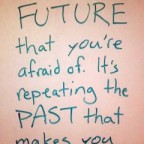 FUTURE
that you're
afraid of. It's
repeating the
PAST that
makes you